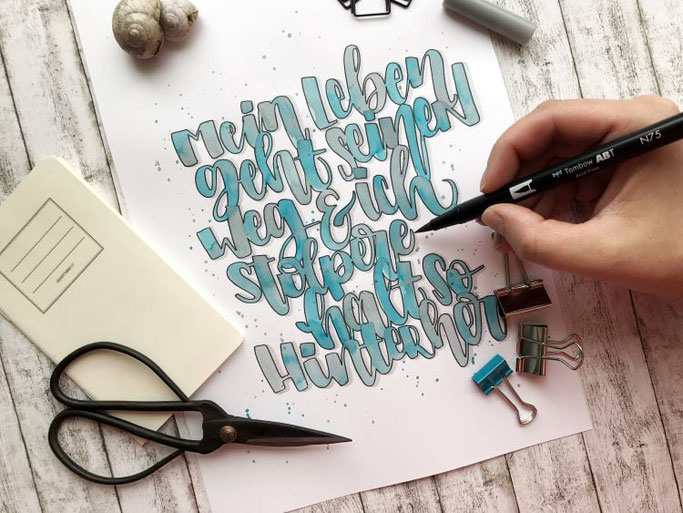 mein Leben
geht seinen
Weg & ich
stolpere
halt so
Hinterher
Tombow ABT N75